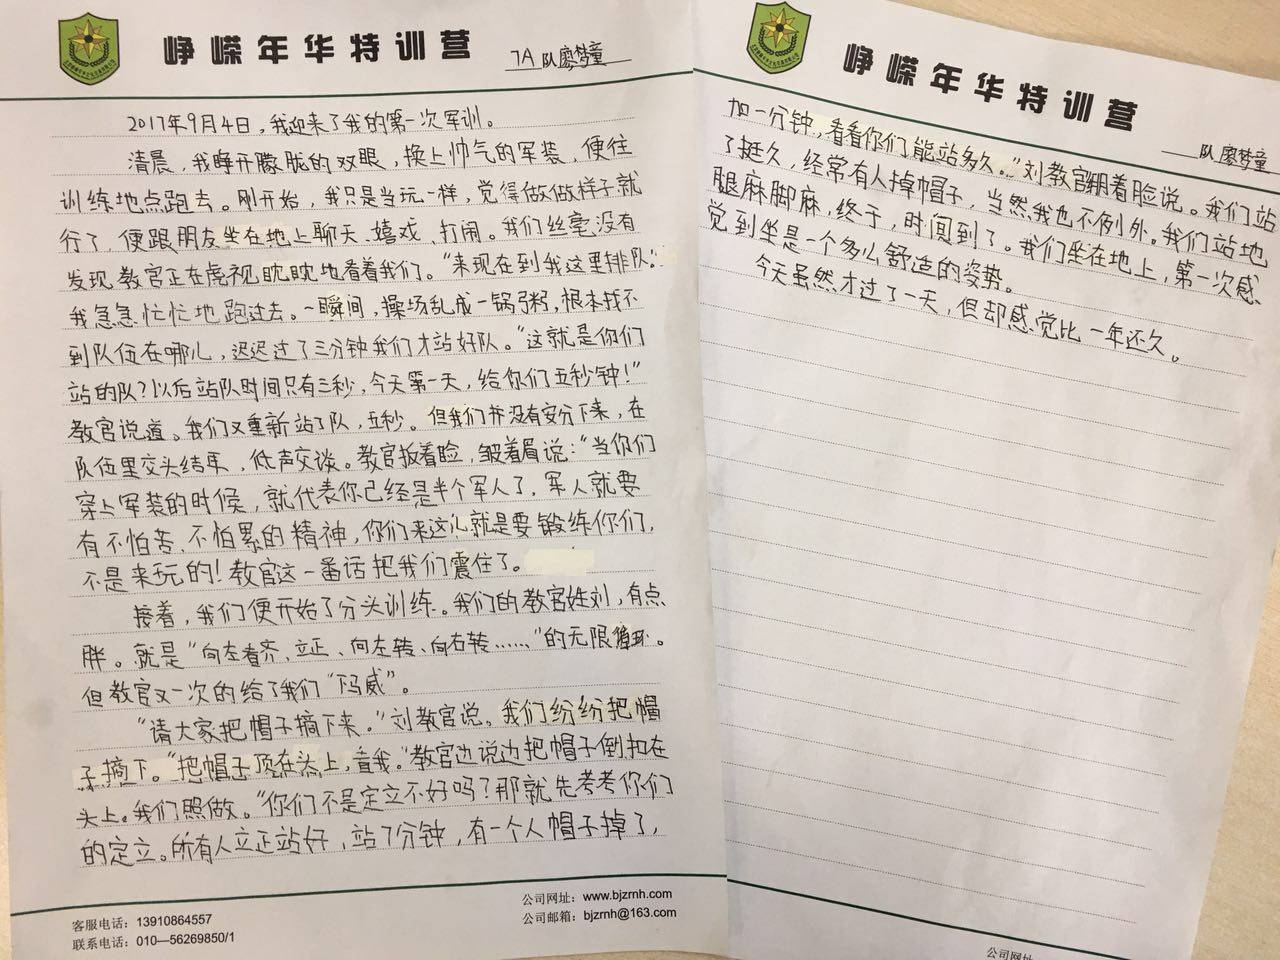 峥嵘年华特训营
7A队廖梦童
2017年9月4日，我迎来了我的第一次军训。
清晨，我睁开朦胧的双眼，换上帅气的军装，便往
训练地点跑去。刚开始，我只是当玩一样，觉得做做样子就
行了，便跟朋友坐在地上聊天、嬉戏、打闹。我们丝毫没有
发现教官正在虎视眈眈地看着我们。“来现在到我这里排队。”
我急急忙忙地跑过去。一瞬间，操场乱成一锅粥，根本找不
到队伍在哪儿，迟迟过了三分钟我们才站好队。“这就是你们
站的队？以后站队时间只有三秒，今天第一天，给你们五秒钟！”
教官说道。我们又重新站了队，五秒。但我们并没有安分下来，在
队伍里交头结耳，低声交谈。教官扳着脸，皱着眉说：“当你们
穿上军装的时候，就代表你已经是半个军人了，军人就要
有不怕苦、不怕累的精神，你们来这儿就是要锻练你们，
不是来玩的！教官这一番话把我们震住了。
接着，我们便开始了分头训练。我们的教官姓刘，有点
胖。就是“向左看齐、立正、向左转、向右转……”的无限循环。
但教官又一次的给了我们“下马威”。
“请大家把帽子摘下来。”刘教官说。我们纷纷把帽
子摘下。“把帽子顶在头上，看我。”教官边说边把帽子倒扣在
头上。我们照做。“你们不是定立不好吗？那就先考考你们
的定立。所有人立正站好，站7分钟，有一个人帽子掉了，
客服电话：13910864557
联系电话：010—56269850/1
公司网址：www.bjzrnh.com
公司邮箱：bjzrnh@163.com
峥嵘年华特训营
队廖梦童
加一分钟，看看你们能站多久。”刘教官绷着脸说。我们站
了挺久，经常有人掉帽子，当然我也不例外。我们站地
腿麻脚麻，终于，时间到了。我们坐在地上，第一次感
觉到坐是一个多么舒适的姿势。
今天虽然才过了一天，但却感觉比一年还久。
公司网址：